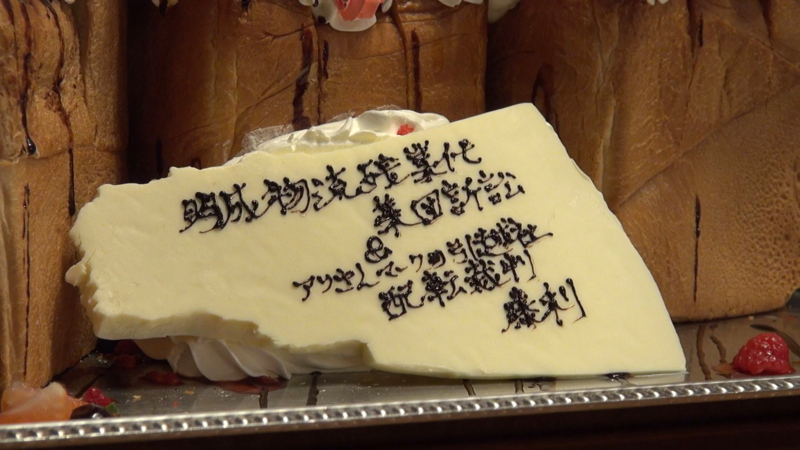 明成物流残業代
集団訴訟
&
アリさんマークの引越社
配転裁判
勝利